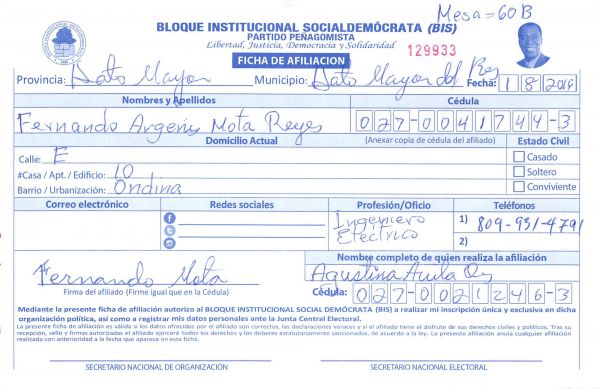 Mesa = 60B
BLOQUE INSTITUCIONAL SOCIALDEMÓCRATA (BIS)
PARTIDO PEÑAGOMISTA
Libertad, Justicia, Democracia y Solidaridad
129933
FICHA DE AFILIACION
Provincia: Hato Mayor Municipio: Hato Mayor del Rey Fecha: 1 8 2016
Nombres y Apellidos Cédula
Fernando Argenis Mota Reyes 027-0041744-3
Domicilio Actual (Anexar copia de cédula del afiliado) Estado Civil
Calle: E Casado
#Casa / Apt. / Edificio: 10 Soltero
Barrio / Urbanización: Ondina Conviviente
Correo electrónico Redes sociales Profesión/Oficio Teléfonos
Ingeniero 1) 809-931-4791
Eléctrico 2)
Nombre completo de quien realiza la afiliación
Fernando Mota Agustina Avila
Firma del afiliado (Firme igual que en la Cédula) Cédula: 027-0021246-3
Mediante la presente ficha de afiliación autorizo al BLOQUE INSTITUCIONAL SOCIAL DEMÓCRATA (BIS) a realizar mi inscripción única y exclusiva en dicha
organización política, así como a registrar mis datos personales ante la Junta Central Electoral.
La presente ficha de afiliación es válida si los datos ofrecidos por el afiliado son correctos, las declaraciones veraces y si el afiliado tiene el disfrute de sus derechos civiles y políticos. Tras su
recepción, sello y firmas autorizadas el afiliado ejercerá todos los derechos y los deberes estatutariamente sancionados, de acuerdo a la ley. La presente afiliación anula cualquier afiliación
realizada con anterioridad a la fecha que aparece en esta ficha.
SECRETARIO NACIONAL DE ORGANIZACIÓN SECRETARIO NACIONAL ELECTORAL